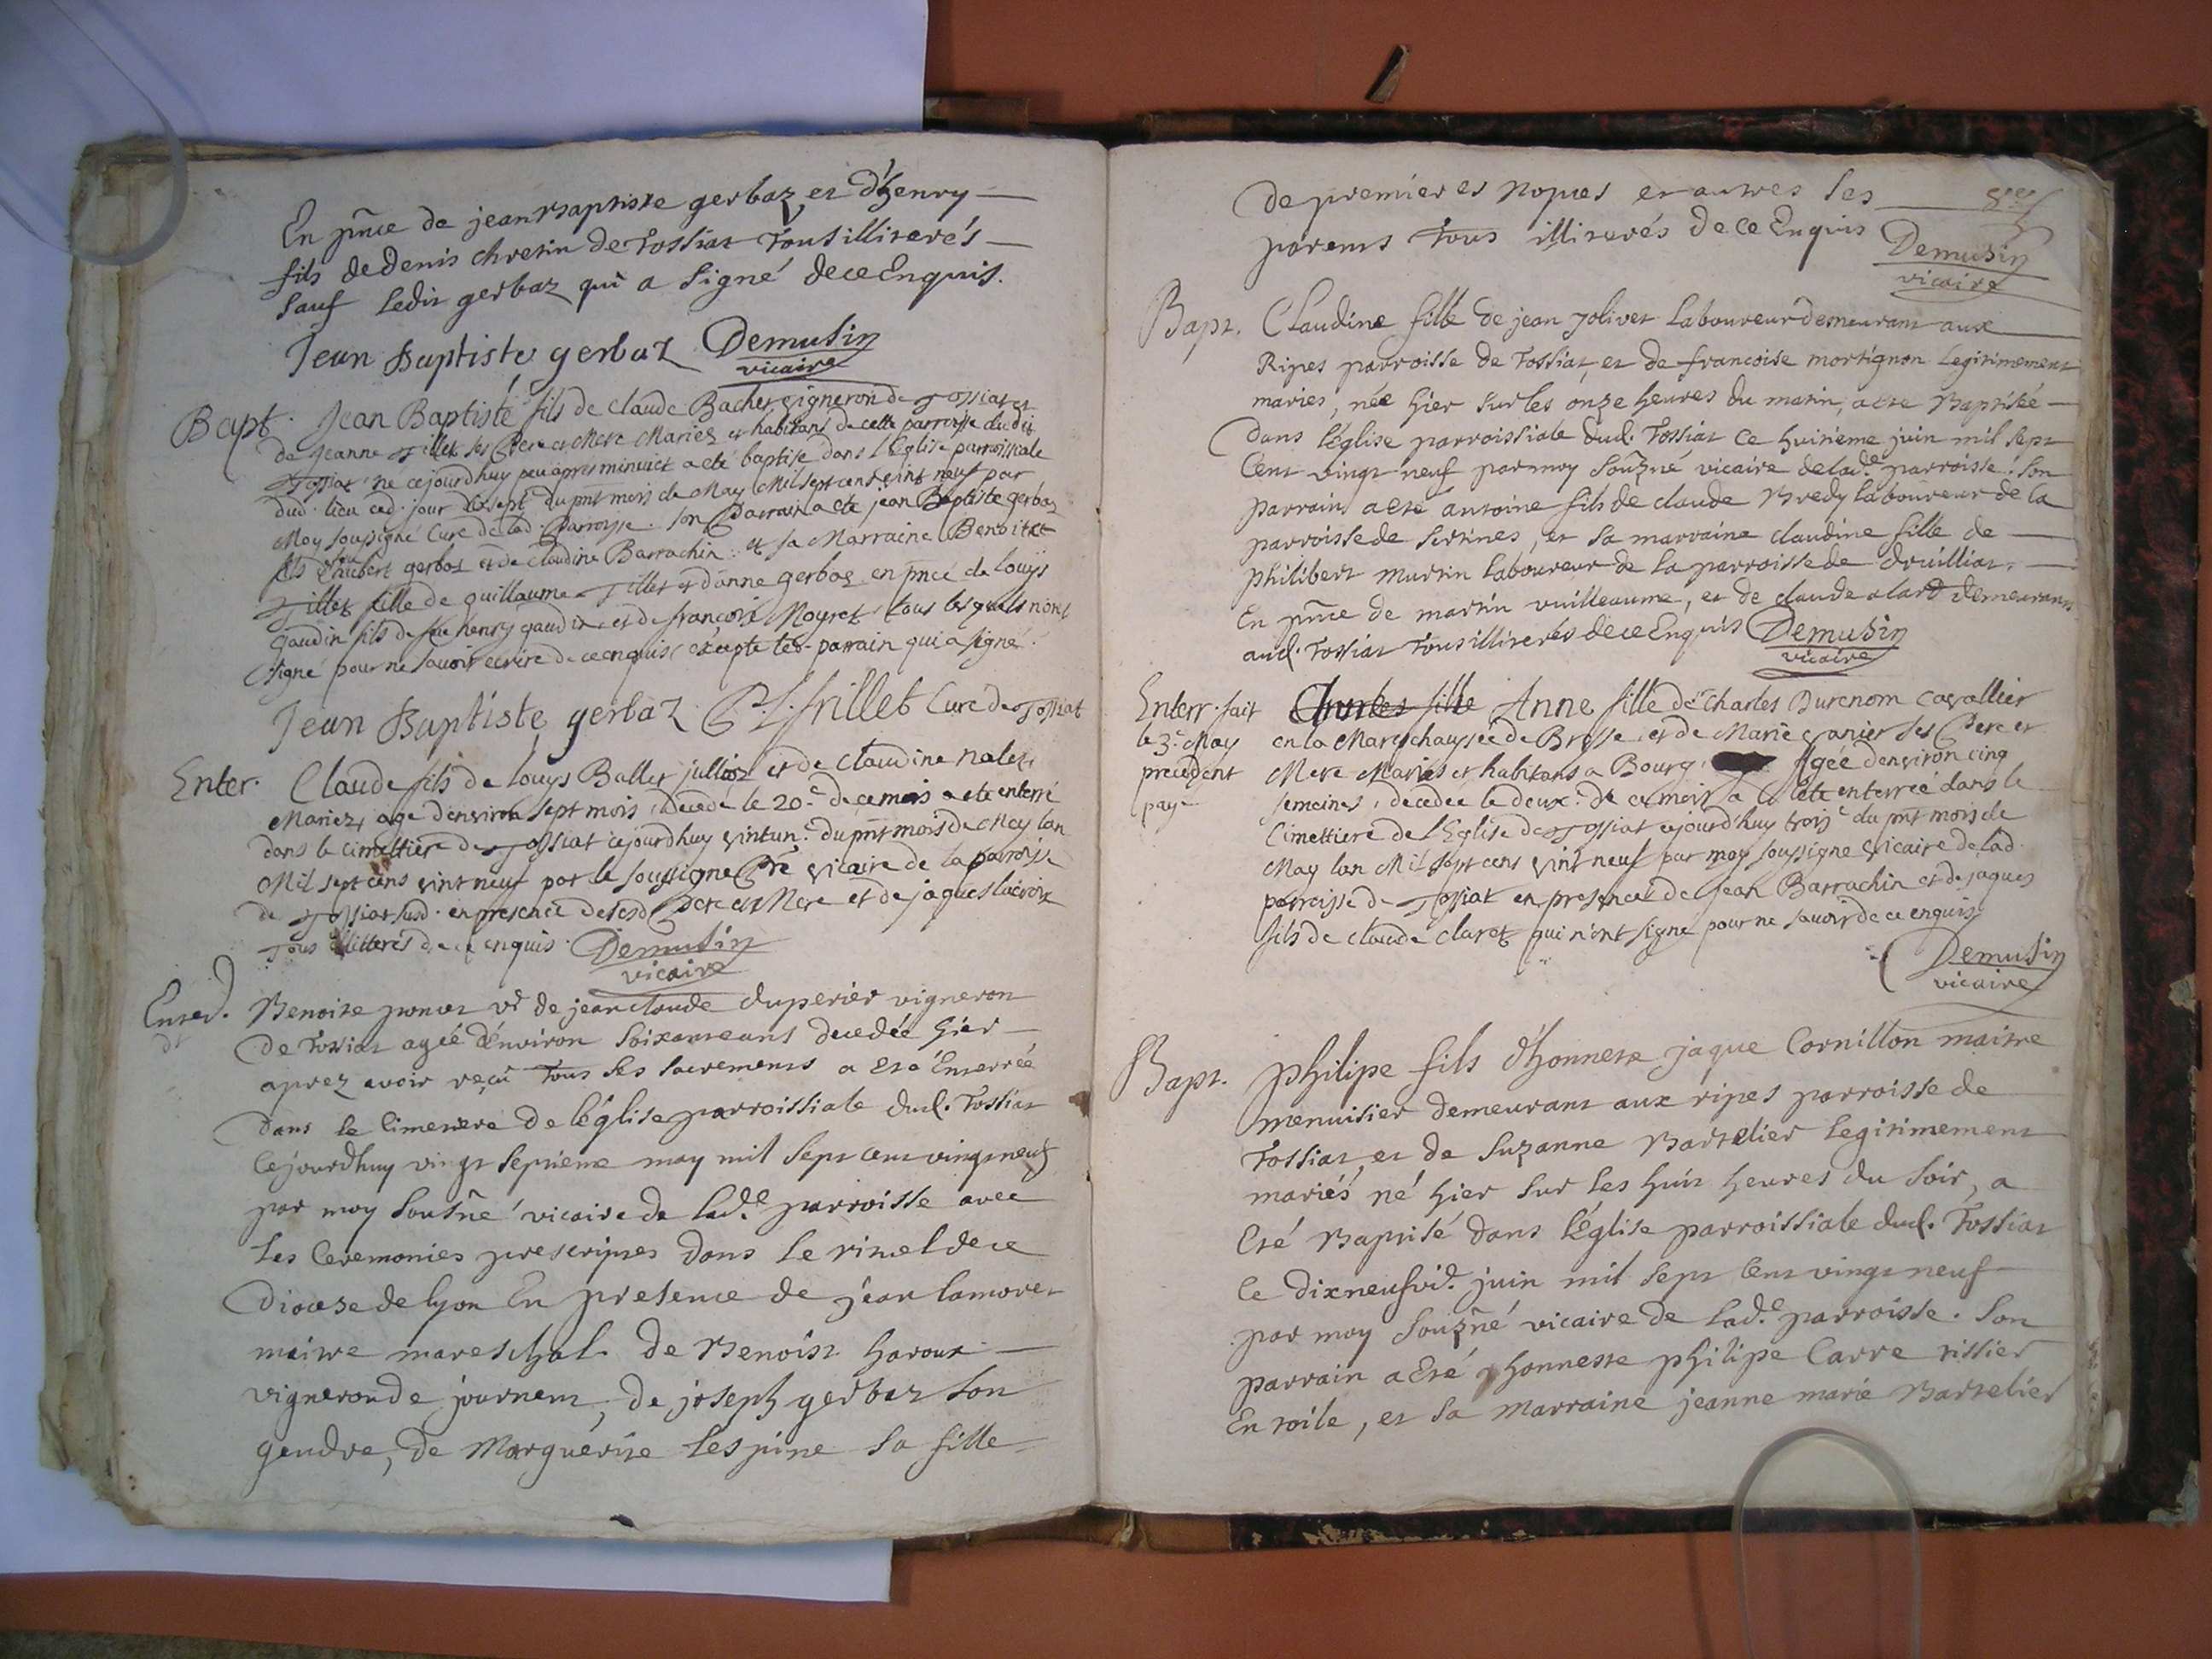 En pñce de jean Baptiste gerbaz, et d'henry
fils de denis chretin de Tossiat Tous illiterés
sauf ledit gerbaz qui a signé de ce Enquis.
Jean Baptiste gerbaz Demusin
vicaire
Bapt. Jean Baptiste fils de claude Bachet vigneron de Tossiat et
de Jeanne Tillet ses Pere et Mere Mariez et habitans de cette parroisse dudit
Tossiat né cejourdhuy peu apres minuict a eté baptisé dans l'Eglise parroissiale
dud. lieu ced. jour du pnt mois de May Mil sept cens vint neuf par
Moy soussigné Curé de lad. Parroisse. son Parrain a eté jean Baptiste gerbaz
fils d'hubert gerbaz et de claudine Barrachin et sa Marraine Benoitte
Tillet fille de guillaume Tillet et d'anne gerbaz en pnce de louys
gaudin fils de feu henry gaudin et de françois Moyret tous lesquels n'ont
signé pour ne savoir ecrire de ce enquis excepté led. parrain qui a signé.
Jean Baptiste gerbaz frillet Curé de Tossiat
Enter. Claude fils de louys Ballet jullioz et de claudine nalet
Mariez, agé d'environ sept mois, decedé le 20e de ce mois a eté enterré
dans le cimettiere de Tossiat cejourdhuy vint un.e du pnt mois de May lan
Mil sept cens vint neuf par le soussigné Pre vicaire de la parroisse
de Tossiat susd. en presence desesd. Pere et Mere et de jaques lacroix
Tous illitterés de ce enquis. Demusin
vicaire
Enter. Benoite poncet ve de jean claude duperier vigneron
De Tossiat agéé d'environ soixante ans decedée hier
aprez avoir reçu Tous ses sacrements a eté Enterrée
Dans le Cimetiere de l'église parroissiale dud. Tossiat
Cejourdhuy vingt septieme may mil sept cent vingt neuf
par moy sousñé vicaire de lad.e parroisse avec
les Ceremonies prescriptes dans le rituel de ce
Diocese de lyon En presence de jean lamoret
maitre mareschal de Benoist haroux
vigneron de journent, de joseph gerbaz son
gendre, de Marguérite lespine sa fille
De premieres nopces et autres ses
parents Tous illiterés de ce Enquis Demusin
vicaire
Bapt. Claudine fille de jean jolivet laboureur demeurant aux
Ripes parroisse de Tossiat, et de francoise mortignon legitimement
mariés, née hier sur les onze heures du matin, a eté Baptisée
Dans l'église parroissiale dud. Tossiat ce huitieme juin mil sept
Cent vingt neuf par moy sousñé vicaire de lad.e parroisse. Son
parrain a eté antoine fils de claude Bredy laboureur de la
parroisse de sertines, et sa marraine claudine fille de
philibert martin laboureur de la parroisse de druilliat.
En pñce de martin vuilleaume, et de claude alard demeurants
aud. Tossiat Tous illiterés de ce Enquis Demusin
vicaire
Enterr. fait le 3.e May precedent page
Charles fille Anne fille de Charles Durenom Cavallier
en la Marechaussée de Bresse, et de Marie vanier ses Pere et
Mere Mariés et habitans a Bourg, Agée d'environ cinq
semeines, decedée le deux.e de ce mois a eté enterrée dans le
Cimettiere de l'Eglise de Tossiat cejourdhuy trois.e du pnt mois de
May lan Mil sept cens vint neuf par moy soussigné vicaire de lad.
parroisse de Tossiat en presence de Jean Barrachin et de jaques
fils de claude claret qui n'ont signé pour ne savoir de ce enquis
Demusin
vicaire
Bapt. Philipe fils d'honnete jaque Cornillon maitre
menuisier demeurant aux ripes parroisse de
Tossiat, et de suzanne Bartelier legitimement
mariés né hier sur les huit heures du soir, a
Eté Baptisé dans l'église parroissiale dud. Tossiat
Ce dixneufvie. juin mil sept cent vingt neuf
par moy sousñé vicaire de lad.e parroisse. Son
parrain a Eté honneste philipe Carre tissier
En toile, et sa marraine jeanne marie Bartelier